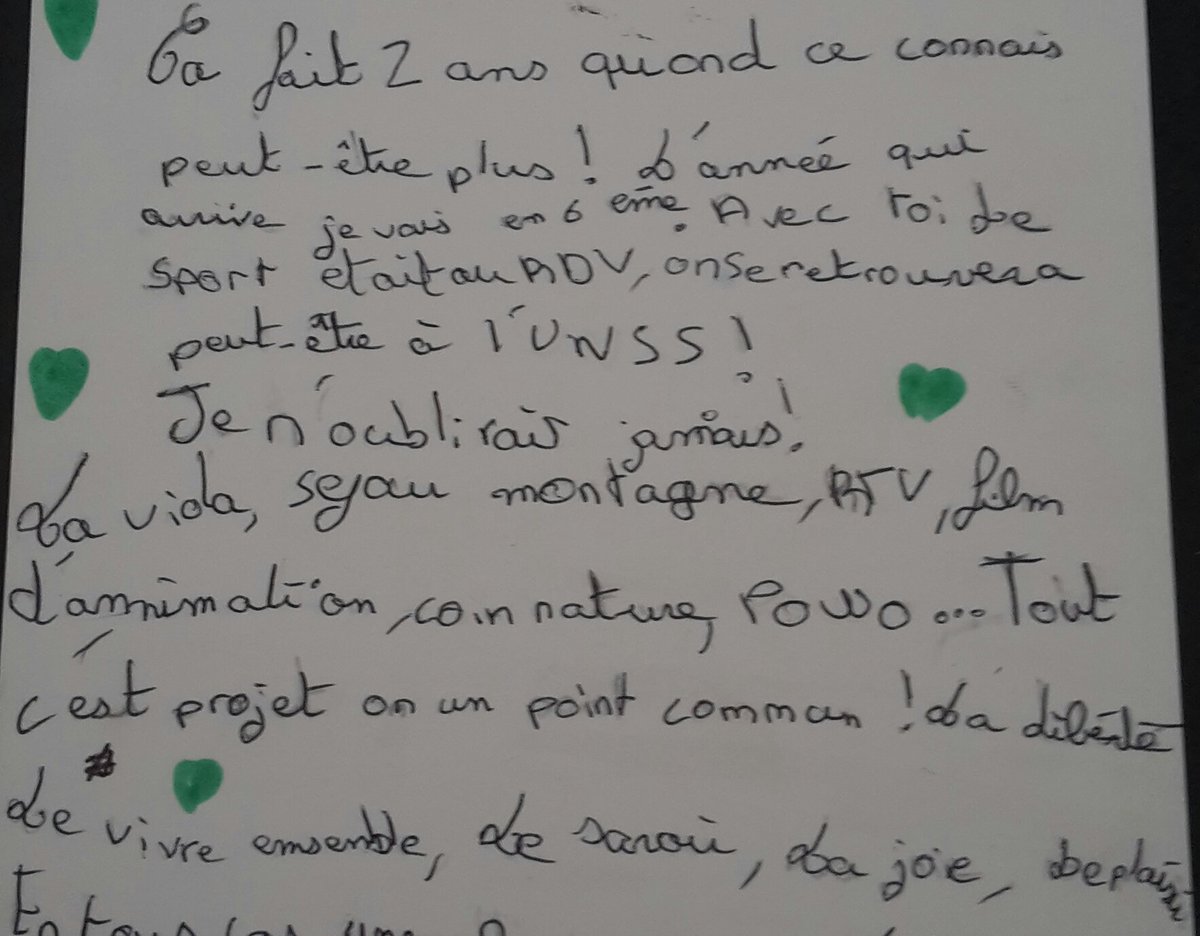 Ça fait 2 ans qu'ond ce connais
peut-être plus! L'anneé qui
arrive je vais en 6 eme. Avec toi Le
Sport était au RDV, on se retrouvera
peut-être à l'UNSS!
Je n'oublirais jamais!
La vida, sejau montagne, RTV, film
d'annimation, coin nature, Powo... Tout
c'est projet on un point comman! La
Le vivre ensemble, Le savoir, La joie, Le plaisir
En tous